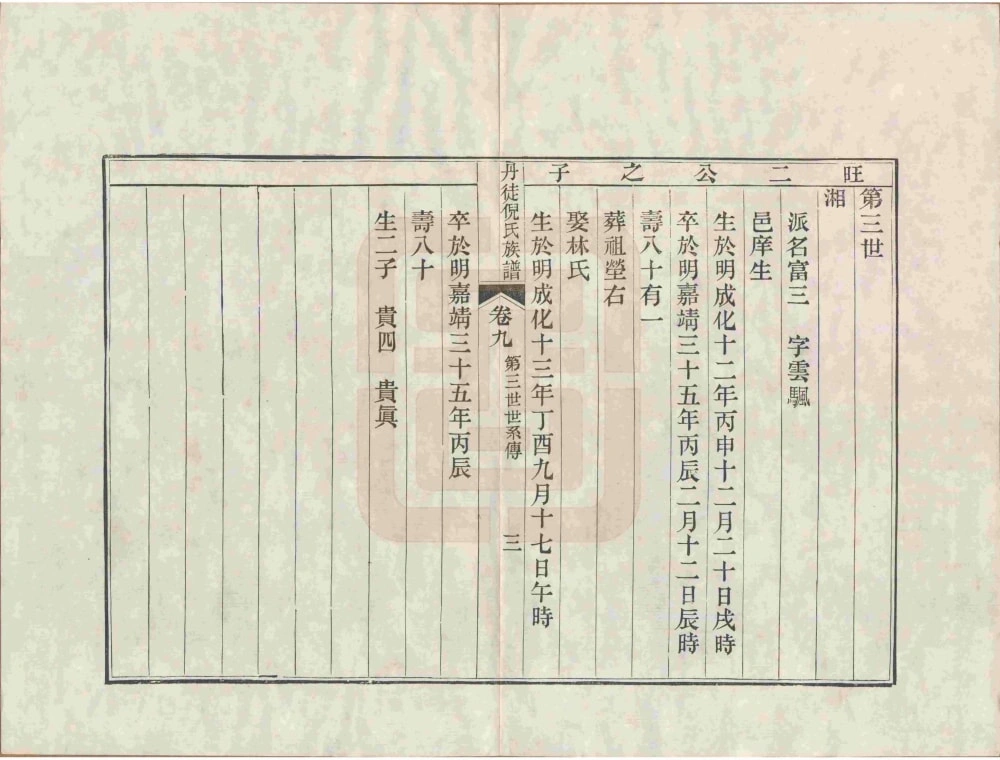 旺二公之子
第三世
湘
派名富三　字雲颿
邑庠生
生於明成化十二年丙申十二月二十日戌時
卒於明嘉靖三十五年丙辰二月十二日辰時
壽八十有一
葬祖塋右
娶林氏
生於明成化十三年丁酉九月十七日午時
丹徒倪氏族譜
卷九
第三世世系傳
三
卒於明嘉靖三十五年丙辰
壽八十
生二子　貴四　貴眞